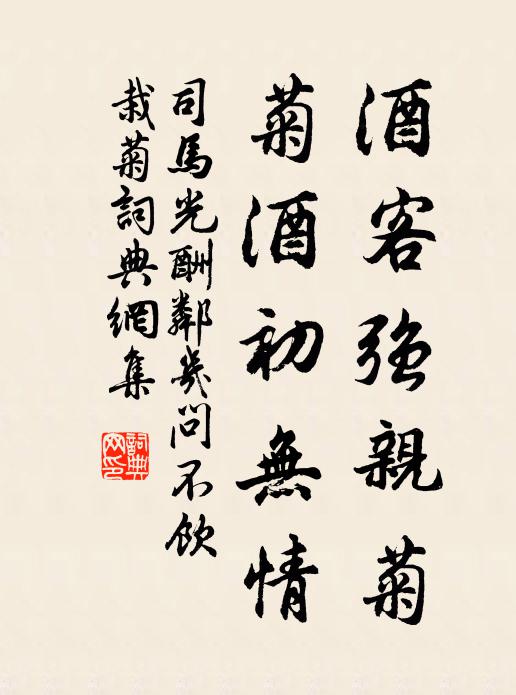 酒客強親菊
菊酒初無情
司馬光酬鄰幾問不飲
栽菊詞典網集
詞典網印